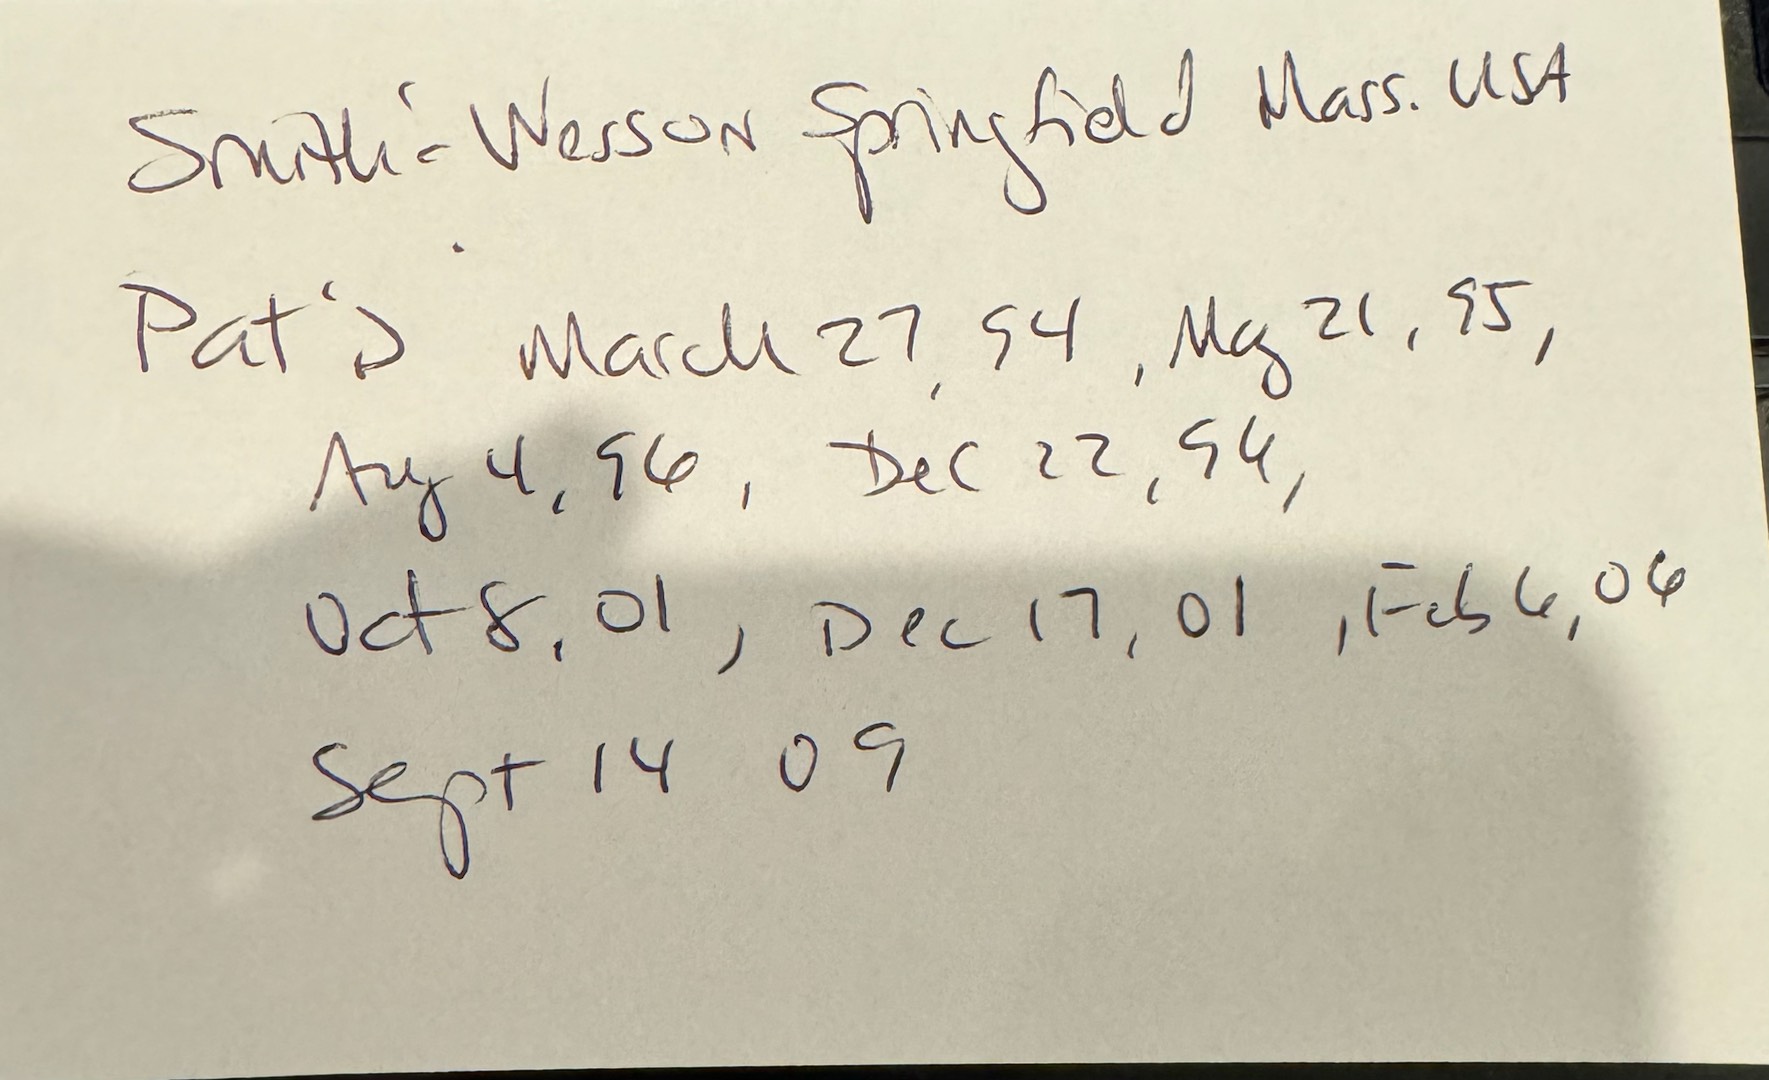 Smith - Wesson Springfield Mass. USA
Pat's March 27, 94, May 21, 95,
Aug 4, 96, Dec 22, 96,
Oct 8, 01, Dec 17, 01, Feb 6, 06
Sept 14 09